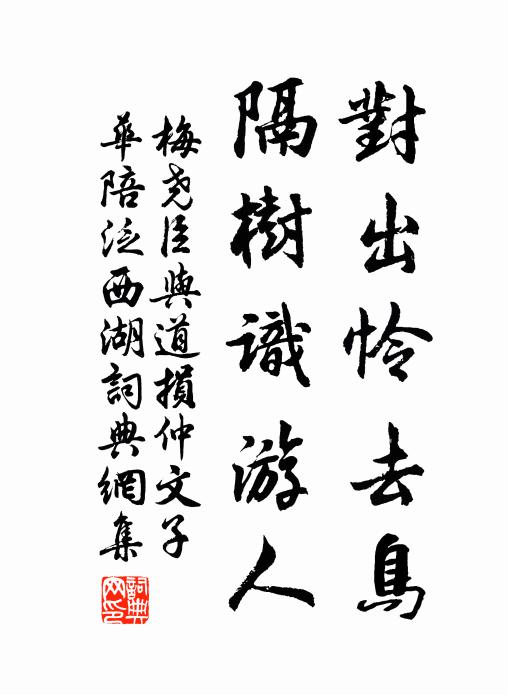 對出怜去鳥
隔樹識游人
梅尧臣與道損仲文子
華陪泛西湖詞典網集
詞典網印